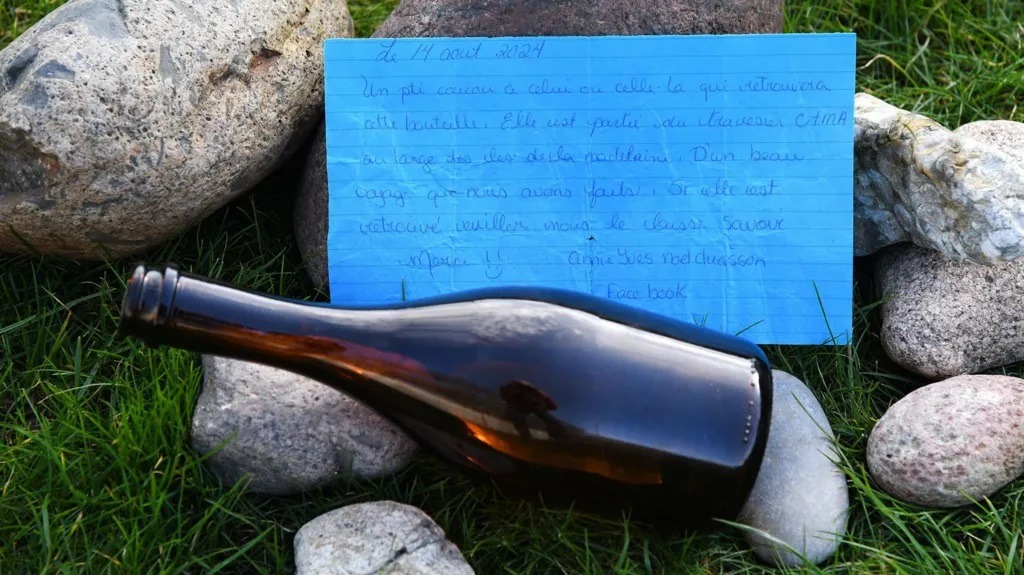 Le 14 aout 2024
Un pti coucou a celui ou celle-la qui retrouvera
cette bouteille. Elle est partie du traversier CTMA
au large des iles de la madelaine. D'un beau
voyage que nous avons faits. Si elle est
retrouvé veuiller nous le laisser savoir
Merci !!
Facebook